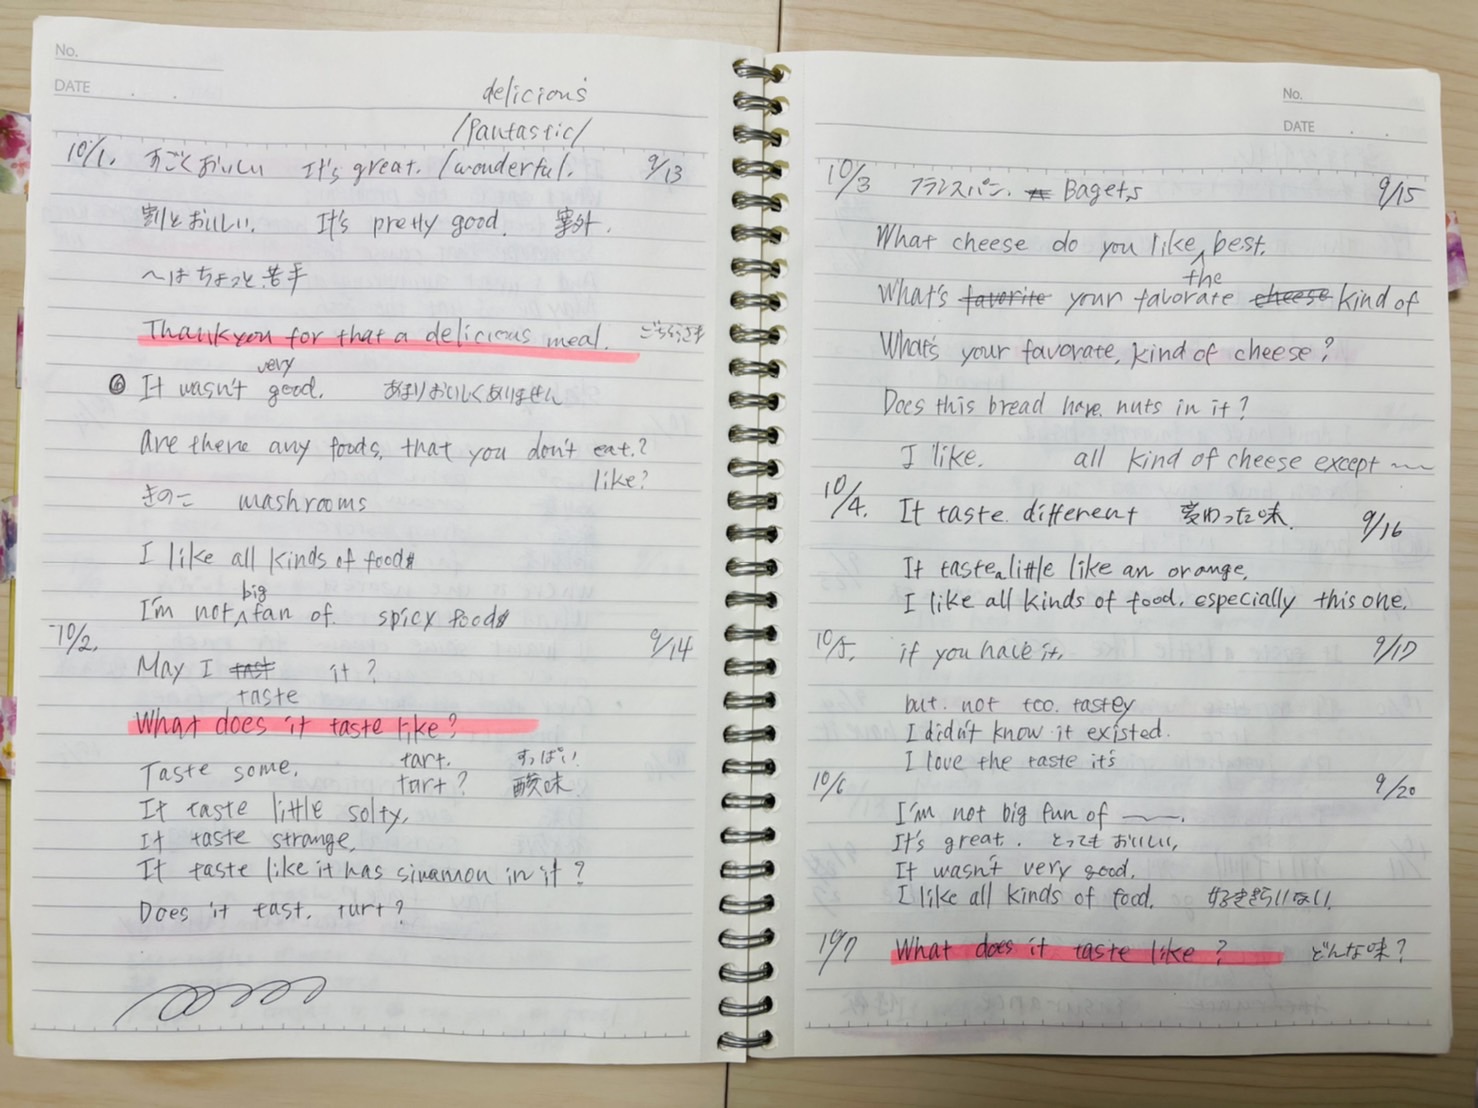 No.
DATE . .
delicious
/fantastic/
10/1. すごくおいしい It's great. /wonderful. 9/13
割とおいしい. It's pretty good. 案外.
〜はちょっと苦手
Thank you for that a delicious meal. ごちそうさま
very
It wasn't good. あまりおいしくありません
Are there any foods, that you don't eat.?
like?
きのこ mashrooms
I like all kinds of food
big
I'm not fan of. spicy food
10/2. 9/14
May I tast it?
taste
What does it taste like?
Taste some. tart. すっぱい.
tart? 酸味.
It taste little solty,
It taste strange,
It taste like it has sinamon in it?
Does it tast. turt?
No.
DATE . .
10/3 フランスパン. Bagets 9/15
What cheese do you like best.
the
What's favorite your favorate cheese kind of
What's your favorate, kind of cheese?
Does this bread have nuts in it?
I like. all kind of cheese except 〜
10/4. It taste different 変わった味. 9/16
It taste a little like an orange,
I like all kinds of food, especially this one.
10/5. if you have it. 9/17
but not too tastey
I didn't know it existed.
I love the taste it's
10/6 9/20
I'm not big fun of 〜.
It's great. とってもおいしい,
It wasn't very good,
I like all kinds of food. 好ききらいない.
10/7 What does it taste like? どんな味?